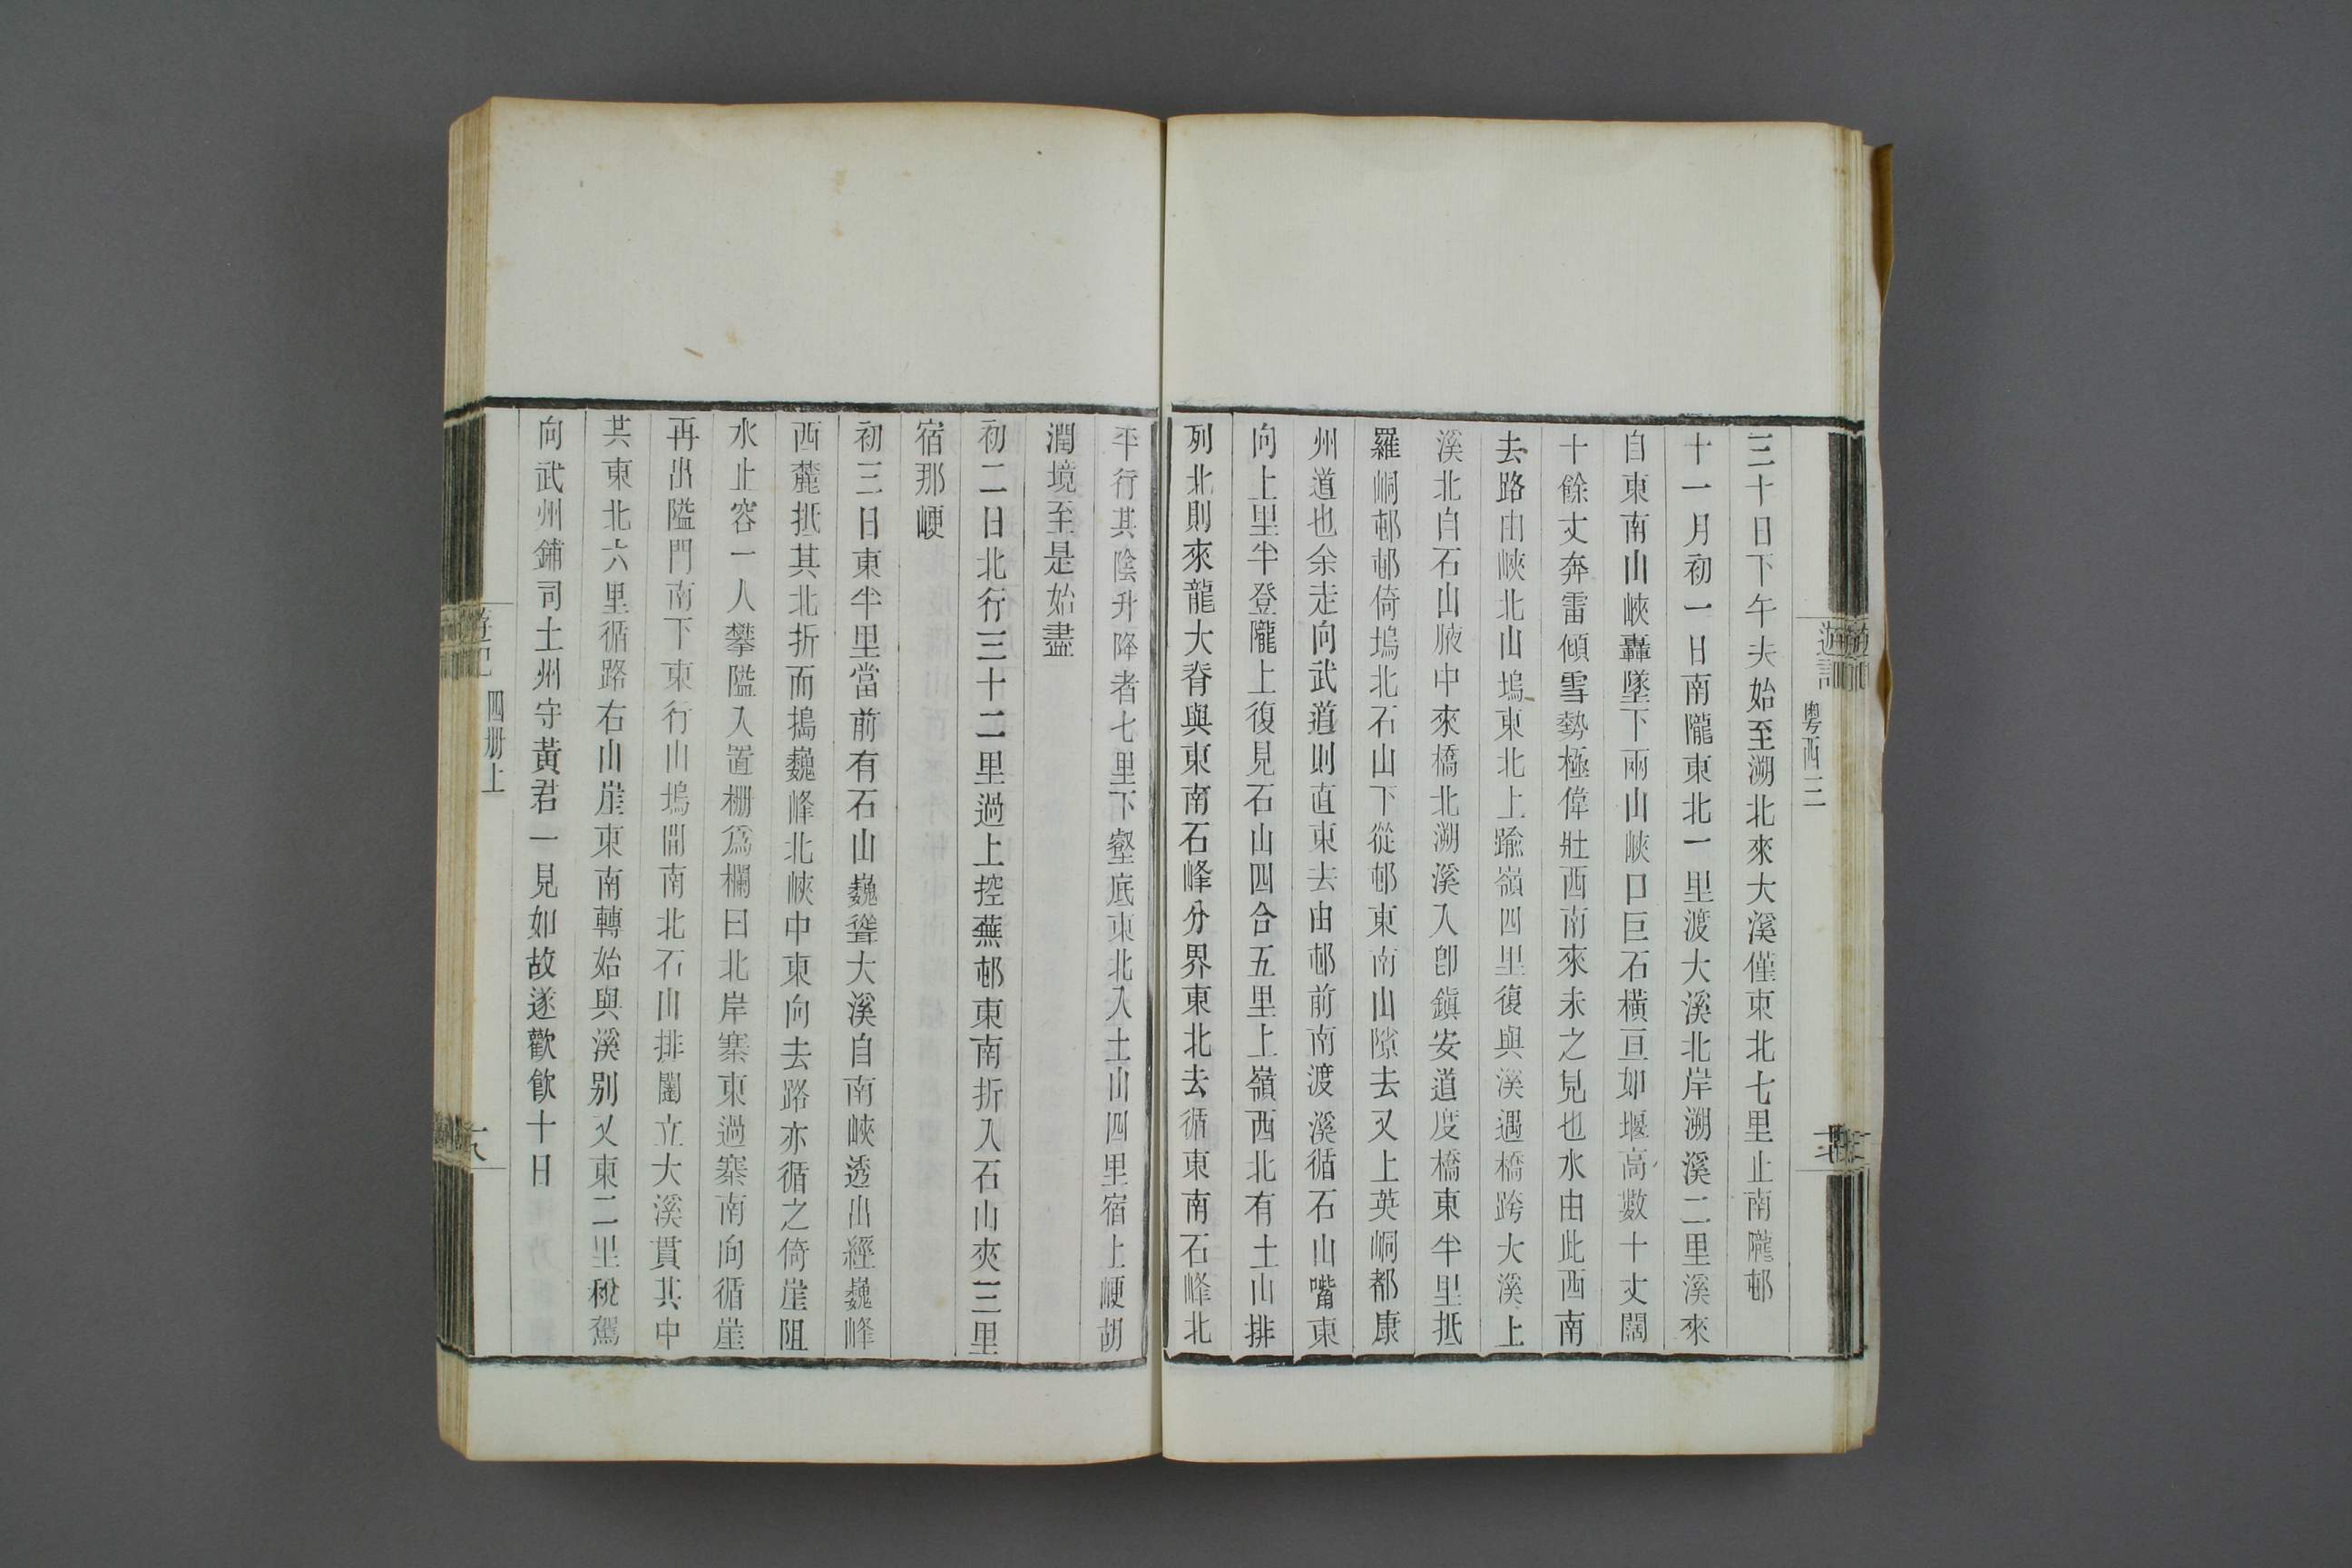 遊記
粵西三
三十日下午夫始至溯北來大溪僅東北七里止南隴邨
十一月初一日南隴東北一里渡大溪北岸溯溪二里溪來
自東南山峽轟墜下兩山峽口巨石橫亘如堰高數十丈闊
十餘丈奔雷傾雪勢極偉壯西南來未之見也水由此西南
去路由峽北山塢東北上踰嶺四里復與溪遇橋跨大溪上
溪北自石山腋中來橋北溯溪入卽鎭安道度橋東半里抵
羅峒邨邨倚塢北石山下從邨東南山隙去又上英峒都康
州道也余走向武道則直東去由邨前南渡溪循石山嘴東
向上里半登隴上復見石山四合五里上嶺西北有土山排
列北則來龍大脊與東南石峰分界東北去循東南石峰北
平行其陰升降者七里下壑底東北入土山四里宿上峺胡
潤境至是始盡
初二日北行三十二里過上控蕪邨東南折入石山夾三里
宿那峺
初三日東半里當前有石山巍聳大溪自南峽透出經巍峰
西麓抵其北折而搗巍峰北峽中東向去路亦循之倚崖阻
水止容一人攀隘入置栅爲欄曰北岸寨東過寨南向循崖
再出隘門南下東行山塢間南北石山排闥立大溪貫其中
共東北六里循路右山崖東南轉始與溪别又東二里稅駕
向武州鋪司土州守黃君一見如故遂歡飮十日
四册上